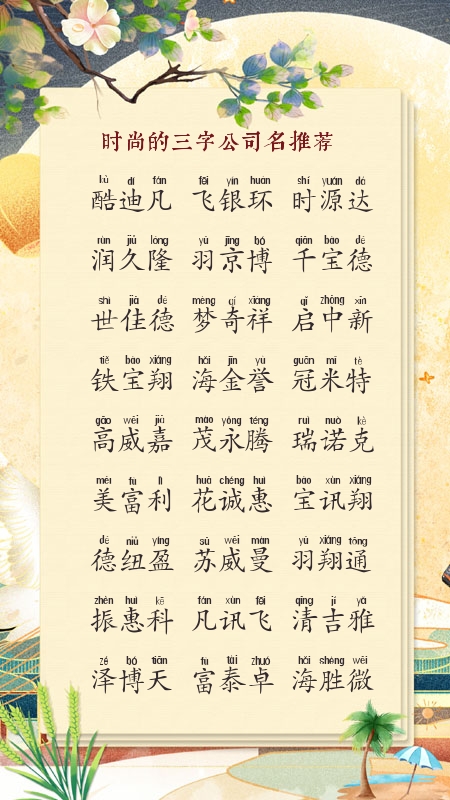 时尚的三字公司名推荐
kù dí fán fēi yín huán shí yuán dá
酷迪凡 飞银环 时源达
rùn jiǔ lóng yǔ jīng bó qiān bǎo dé
润久隆 羽京博 千宝德
shì jiā dé mèng qí xiáng qǐ zhōng xīn
世佳德 梦奇祥 启中新
tiě bǎo xiáng hǎi jīn yù guān mǐ tè
铁宝翔 海金誉 冠米特
gāo wēi jiā mào yǒng téng ruì nuò kè
高威嘉 茂永腾 瑞诺克
měi fù lì huā chéng huì bǎo xùn xiáng
美富利 花诚惠 宝讯翔
dé niǔ yíng sū wēi màn yǔ xiáng tōng
德纽盈 苏威曼 羽翔通
zhèn huì kē fán xùn fēi qīng jí yǎ
振惠科 凡讯飞 清吉雅
zé bó tiān fù tài zhuó hǎi shèng wēi
泽博天 富泰卓 海胜微